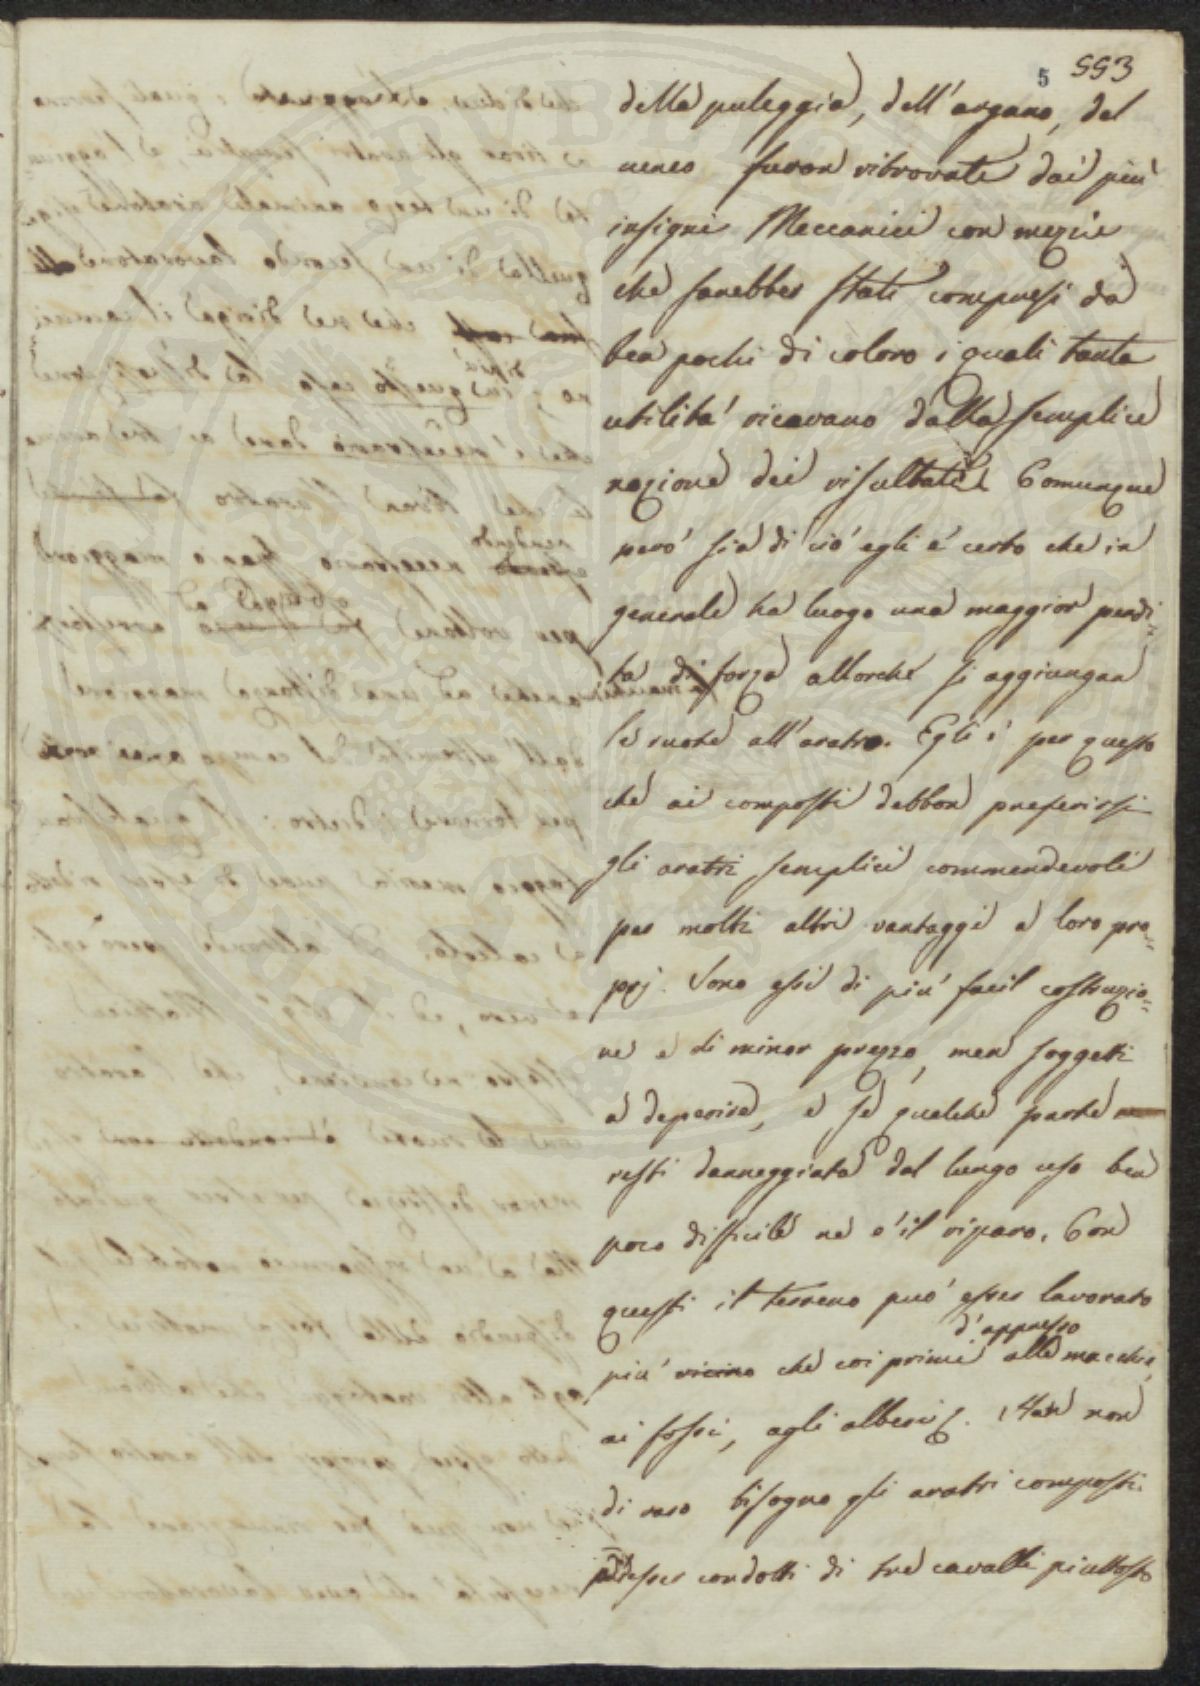 553
5
della puleggia, dell'argano, del
cuneo furon ritrovate dai più
insigni Meccanici con mezzi
che sarebber stati compresi da
ben pochi di coloro i quali tanta
utilità ricavano dalla semplice
nozione dei risultati. Comunque
però sia di ciò egli è certo che in
generale ha luogo una maggior perdi=
ta di forza allorché si aggiungan
le ruote all'aratro. Egli è per questo
che ai composti debbon preferirsi
gli aratri semplici commendevoli
per molti altri vantaggi a loro pro=
prj. Sono essi di più facil costruzio=
ne e di minor prezzo, men soggetti
a deperire, e se qualche parte ne
resti danneggiata dal lungo uso ben
poco difficile ne è il riparo. Con
questi il terreno può esser lavorato
d'appresso
più vicino che coi primi alle macchie,
ai fossi, agli alberi &. Han non
di raro bisogno gli aratri composti
d'esser condotti di tre cavalli piuttosto